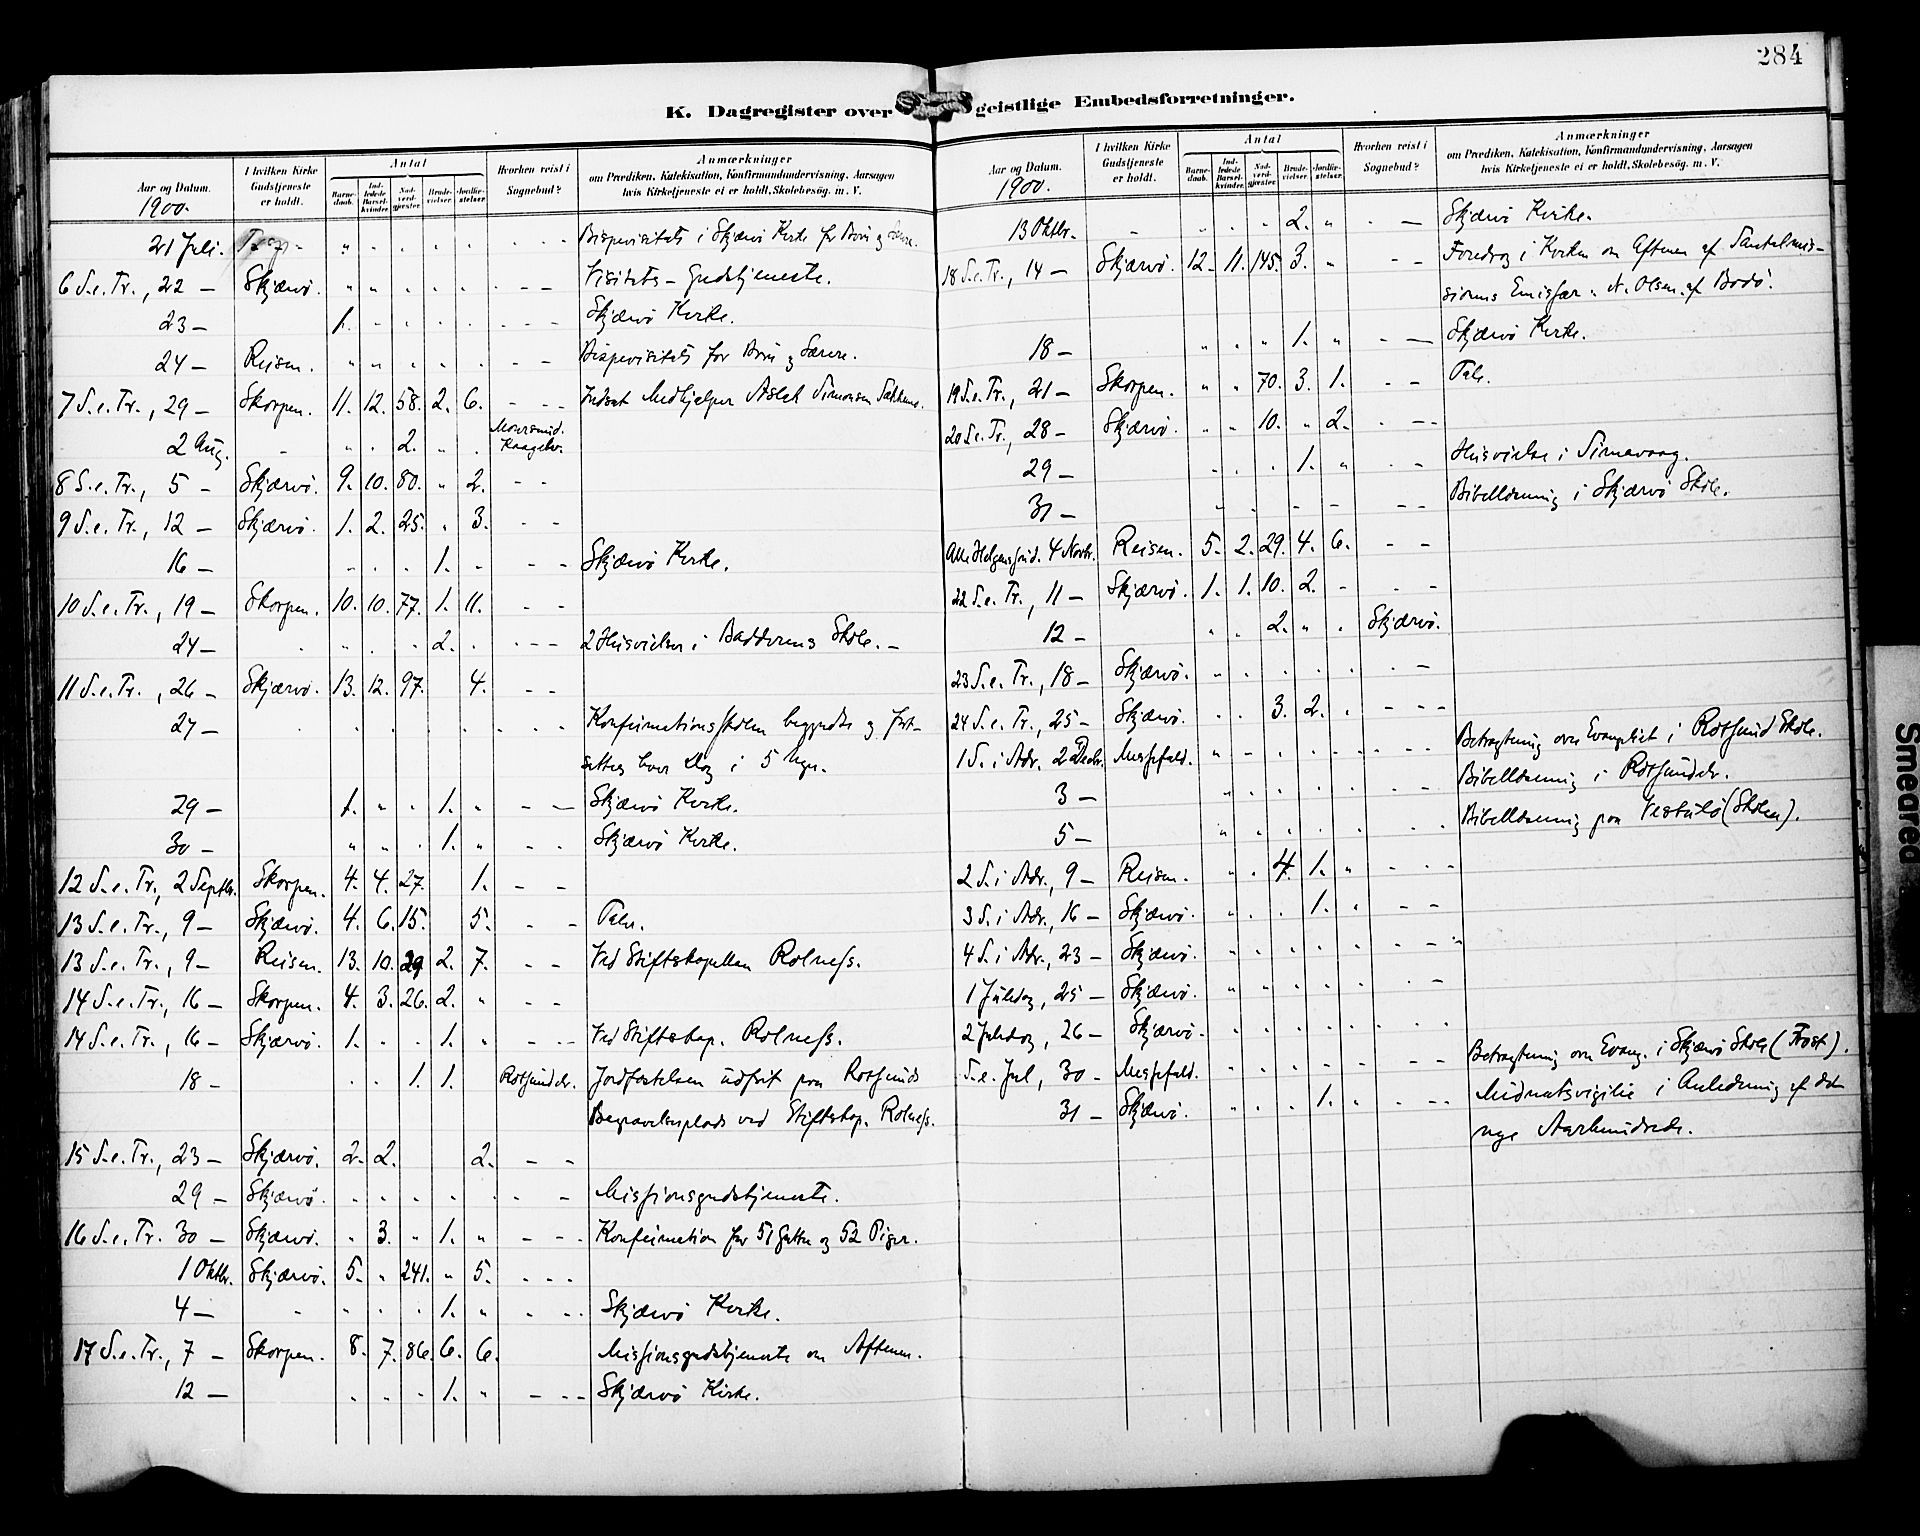 284
K. Dagregister over geistlige Embedsforretninger.
Aar og Datum. 1900. I hvilken Kirke Gudstjeneste er holdt. Antal Barnedaab. Indledede Barselkvinder. Nadverdgjæster. Brudevielser. Jordfæstelser. Hvorhen reist i Sognebud? Anmærkninger om Prædiken, Katekisation, Konfirmandundervisning, Aarsagen hvis Kirketjeneste ei er holdt, Skolebesøg. m. V.
21 Juli. " - - - - - - - Bispevisitats i Skjærvö Kirke for Börn og
6 S. e. Tr., 22 — Skjærvö. " " - - - - - - Visitats-Gudstjeneste.
23 — 1. - - - - - - - Skjærvö Kirke.
24 — Reisen. " " - - - - - Bispevisitats for Börn og Lærere.
7 S. e. Tr., 29 — Skorpen. 11. 12. 58. 2. 6. - - - Indsat Medhjelper Aslak Simonsen
2 Aug. - " - 2. " - Kaagelv.
8 S. e. Tr., 5 — Skjærvö. 9. 10. 80. " 2. - -
9 S. e. Tr., 12 — Skjærvö. 1. 2. 25. " 3. - -
16 — " - - 1. - - - Skjærvö Kirke.
10 S. e. Tr., 19 — Skorpen. 10. 10. 77. 1. 11. - -
24 — - - - - 2. - - - - 2 Husvielser i Badderens Skole. -
11 S. e. Tr., 26 — Skjærvö. 13. 12. 97. 4. - -
27 — - - - - - - - - Konfirmationsskolen begyndte og fort-
sattes hver Dag i 5 Uger.
29 — 1. " - 1. " - - Skjærvö Kirke.
30 — " " - 1. " - - Skjærvö Kirke.
12 S. e. Tr., 2 Septbr. Skorpen. 4. 4. 27. 1. - -
13 S. e. Tr., 9 — Skjærvö. 4. 6. 15. 5. - - Tale.
13 S. e. Tr., 9 — Reisen. 13. 10. 29 2. 7. - - Ved Stiftskapellan Rolness.
14 S. e. Tr., 16 — Skorpen. 4. 3. 26. 2. " - -
14 S. e. Tr., 16 — Skjærvö. 1. - - 1. " - - - Ved Stiftskap. Rolness.
18 — - - 1. 1. Rotsundelv. Jordfæstelsen udfört paa Rotsunds
Begravelsesplads ved Stiftskap. Rolness.
15 S. e. Tr., 23 — Skjærvö. 2. 2. 2. - -
29 — Skjærvö. - - - - - - - Missionsgudstjeneste.
16 S. e. Tr. 30 — Skjærvö. " 3. " 1. " - - - Konfirmation for 51 Gutter og 52 Piger.
1 Oktbr. Skjærvö. 5. " 241. " 5. - - -
4 — - " - - 1. " - - - Skjærvö Kirke.
17 S. e. Tr., 7 — Skorpen. 8. 7. 86. 6. 6. Missionsgudstjeneste om Aftenen.
12 — - - - 1. " - - - Skjærvö Kirke.
Aar og Datum. 1900. I hvilken Kirke Gudstjeneste er holdt. Antal Barnedaab. Indledede Barselkvinder. Nadverdgjæster. Brudevielser. Jordfæstelser. Hvorhen reist i Sognebud? Anmærkninger om Prædiken, Katekisation, Konfirmandundervisning, Aarsagen hvis Kirketjeneste ei er holdt, Skolebesøg. m. V.
13 Oktbr. - " - - 2. " - - Skjærvö Kirke.
18 S. e. Tr., 14 — Skjærvö. 12. 11. 145. 3. " - - Foredrag i Kirken om Aftenen af Santalmis-
sionens Emissær N. Olsen af Bodö.
18 — " - " 1. " - - Skjærvö Kirke.
19 S. e. Tr., 21 — Skorpen. " " 70. 3. 1. - - Tale.
20 S. e. Tr., 28 — Skjærvö. " " 10. " 2. - - -
29 — - - - 1. " - - Husvielse i Simavaag.
31 — " - - - - - - Bibellæsning i Skjærvö Skole.
Alle Helgensönd. 4 Novbr. Reisen. 5. 2. 29. 4. 6. - -
22 S. e. Tr., 11 — Skjærvö. 1. 1. 10. 2. - - -
12 — " - 2. " - Skjærvö.
23 S. e. Tr., 18 — Skjærvö. " - - - - - -
24 S. e. Tr., 25 — Skjærvö. - - 3. 2. - - - -
1 S. i Adv. 2 Decbr. Messefald. " - - - - - - - Betragtning over Evangeliet i Rotsund Skole.
3 — " - - - - - - Bibellæsning i Rotsundelv.
5 — " - - - - - - Bibellæsning paa (Skolen).
2 S. i Adv., 9 — Reisen. " - 4. 1. " - - -
3 S. i Adv., 16 — Skjærvö. " - - 1. - - -
4 S. i Adv., 23 — Skjærvö. " - - - - - - "
1 Juledag, 25 — Skjærvö. " " - - - - -
2 Juledag, 26 — Skjærvö. - - - - - - - -
S. e. Jul, 30 — Messefald. - - - - - - - Betragtning over Evang. i Skjærvö Skole (Frost).
31 — Skjærvö. " - - 1. " - - - Midnatsvigilie i Anledning af det
nye Aarhundrede.
Smeared